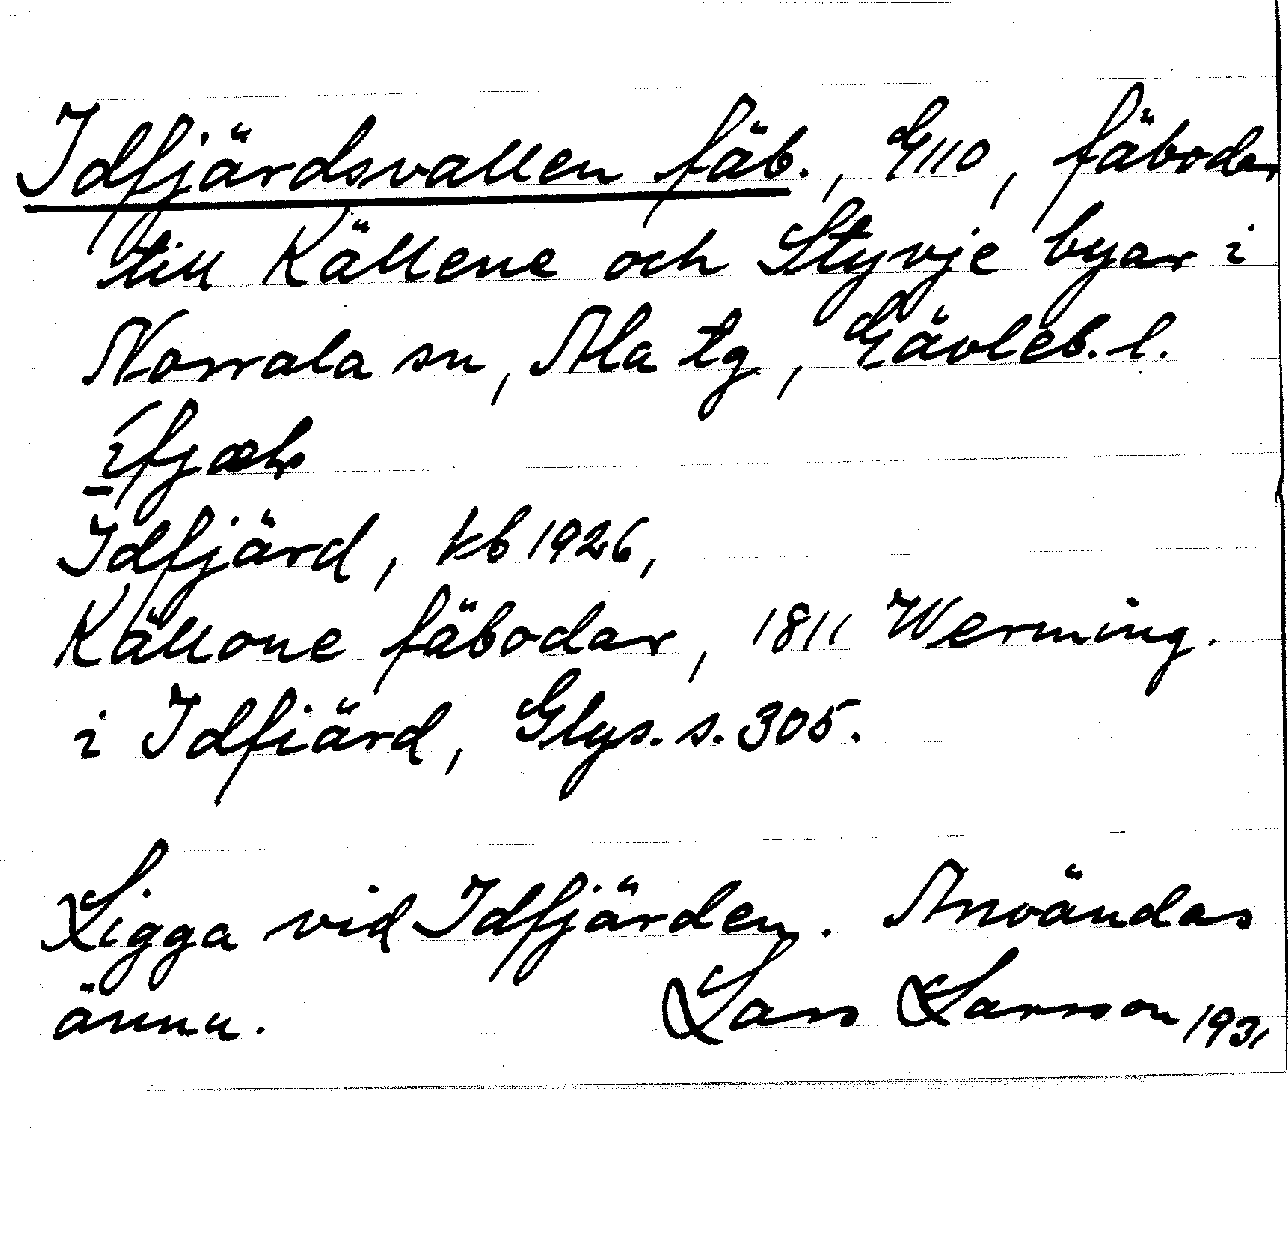 Idfjärdsvallen fäb., G110, fäbodar
till Källene och Styvje byar i
Norrala sn, Ala tg, Gävleb. l.
Idfjärd, kb 1926,
Källone fäbodar, 1811 Werming.
i Idfiärd, Glys. s. 305.
Ligga vid Idfjärden. Användas
ännu. Lars Larsson 1931